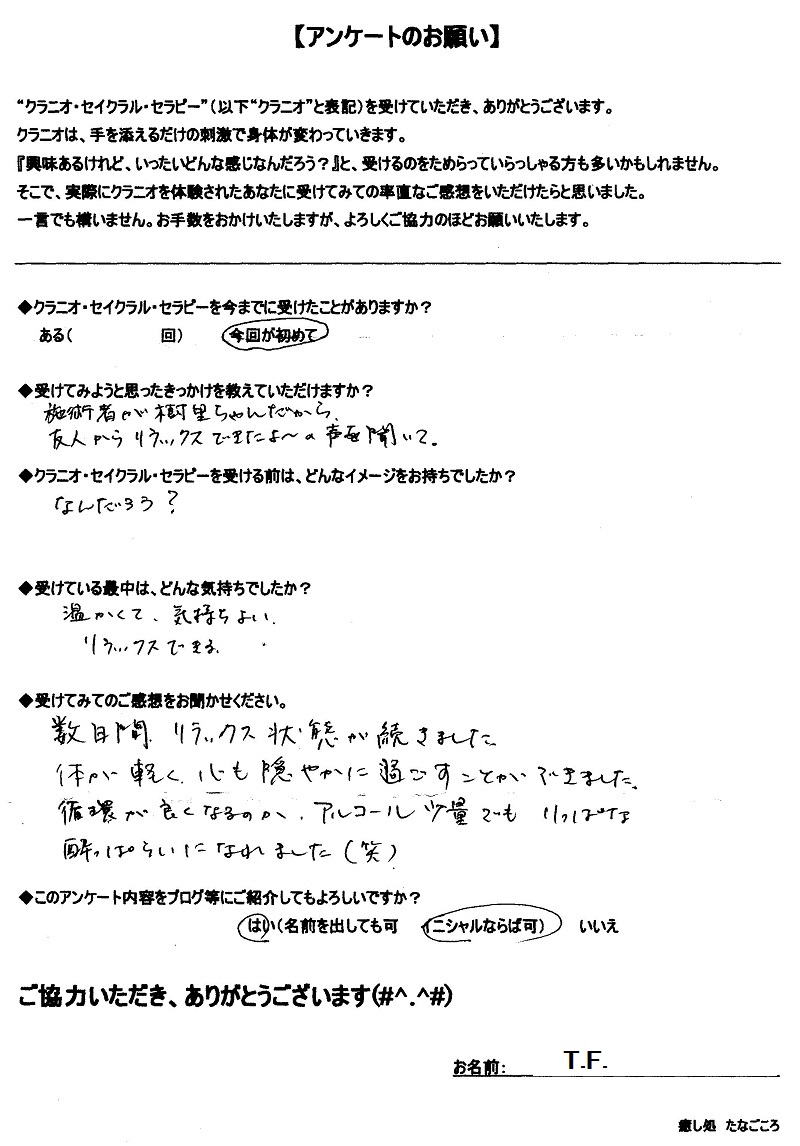 【アンケートのお願い】
“クラニオ・セイクラル・セラピー”（以下“クラニオ”と表記）を受けていただき、ありがとうございます。
クラニオは、手を添えるだけの刺激で身体が変わっていきます。
『興味あるけれど、いったいどんな感じなんだろう？』と、受けるのをためらっていらっしゃる方も多いかもしれません。
そこで、実際にクラニオを体験されたあなたに受けてみての率直なご感想をいただけたらと思いました。
一言でも構いません。お手数をおかけいたしますが、よろしくご協力のほどお願いいたします。
◆クラニオ・セイクラル・セラピーを今までに受けたことがありますか？
ある（　　　　　　回）　　今回が初めて
◆受けてみようと思ったきっかけを教えていただけますか？
施術者が樹里ちゃんだから、
友人からリラックスできたよ〜の声を聞いて。
◆クラニオ・セイクラル・セラピーを受ける前は、どんなイメージをお持ちでしたか？
なんだろう？
◆受けている最中は、どんな気持ちでしたか？
温かくて、気持ちよい。
リラックスできる。
◆受けてみてのご感想をお聞かせください。
数日間、リラックス状態が続きました。
体が軽く、心も穏やかに過ごすことができました。
循環が良くなるのか、アルコール少量でもりっぱな
酔っぱらいになれました（笑）
◆このアンケート内容をブログ等にご紹介してもよろしいですか？
はい（名前を出しても可　イニシャルならば可）　いいえ
ご協力いただき、ありがとうございます(#^.^#)
お名前：　T.F.
癒し処　たなごころ